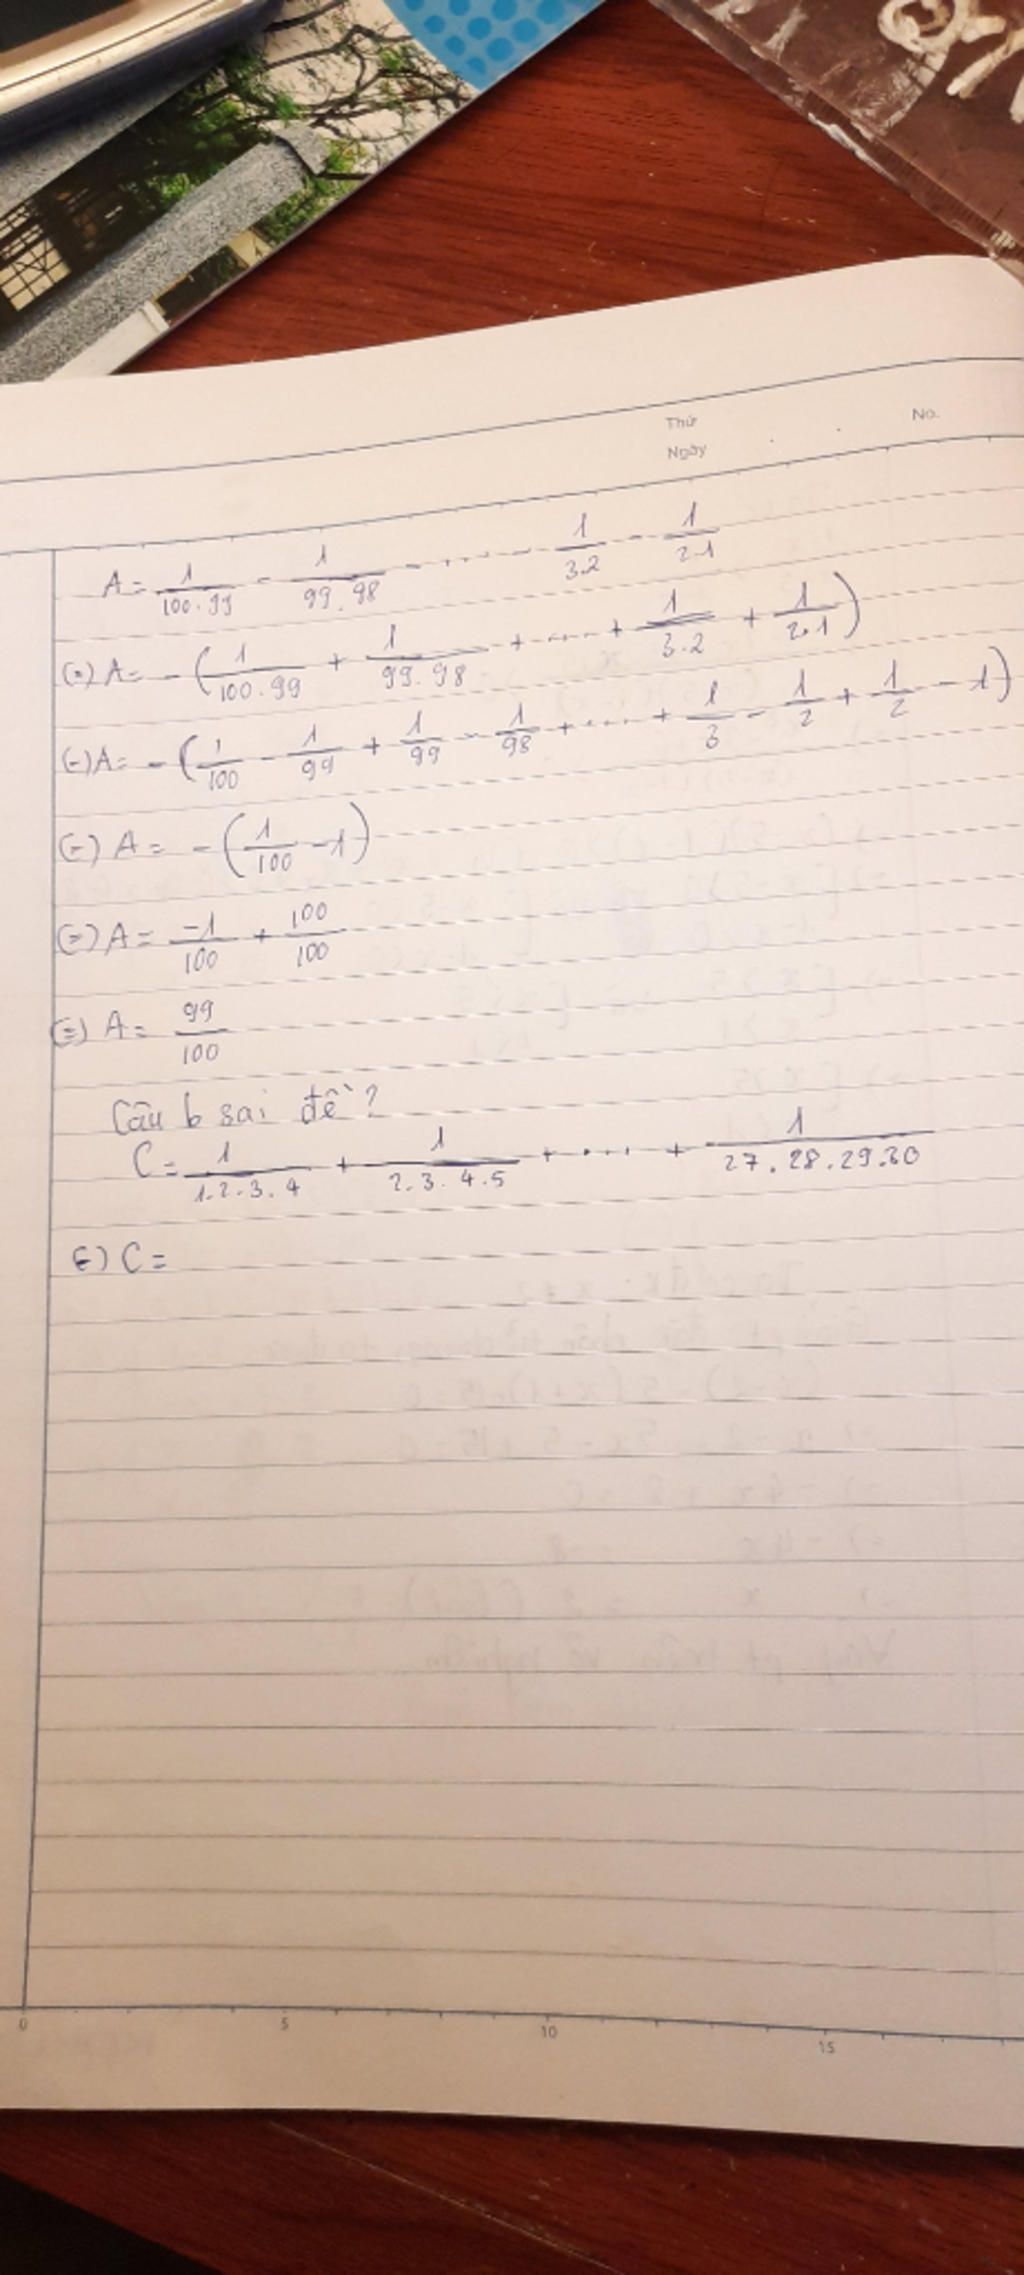 Thứ
Ngày
No.
A = 1/100.99 - 1/99.98 - .... - 1/3.2 - 1/2.1
(=) A = - (1/100.99 + 1/99.98 + .... + 1/3.2 + 1/2.1)
(=) A = - (1/100 - 1/99 + 1/99 - 1/98 + .... + 1/3 - 1/2 + 1/2 - 1)
(=) A = - (1/100 - 1)
(=) A = -1/100 + 100/100
(=) A = 99/100
Câu b sai đề?
C = 1/1.2.3.4 + 1/2.3.4.5 + .... + 1/27.28.29.30
(=) C =
0 5 10 15